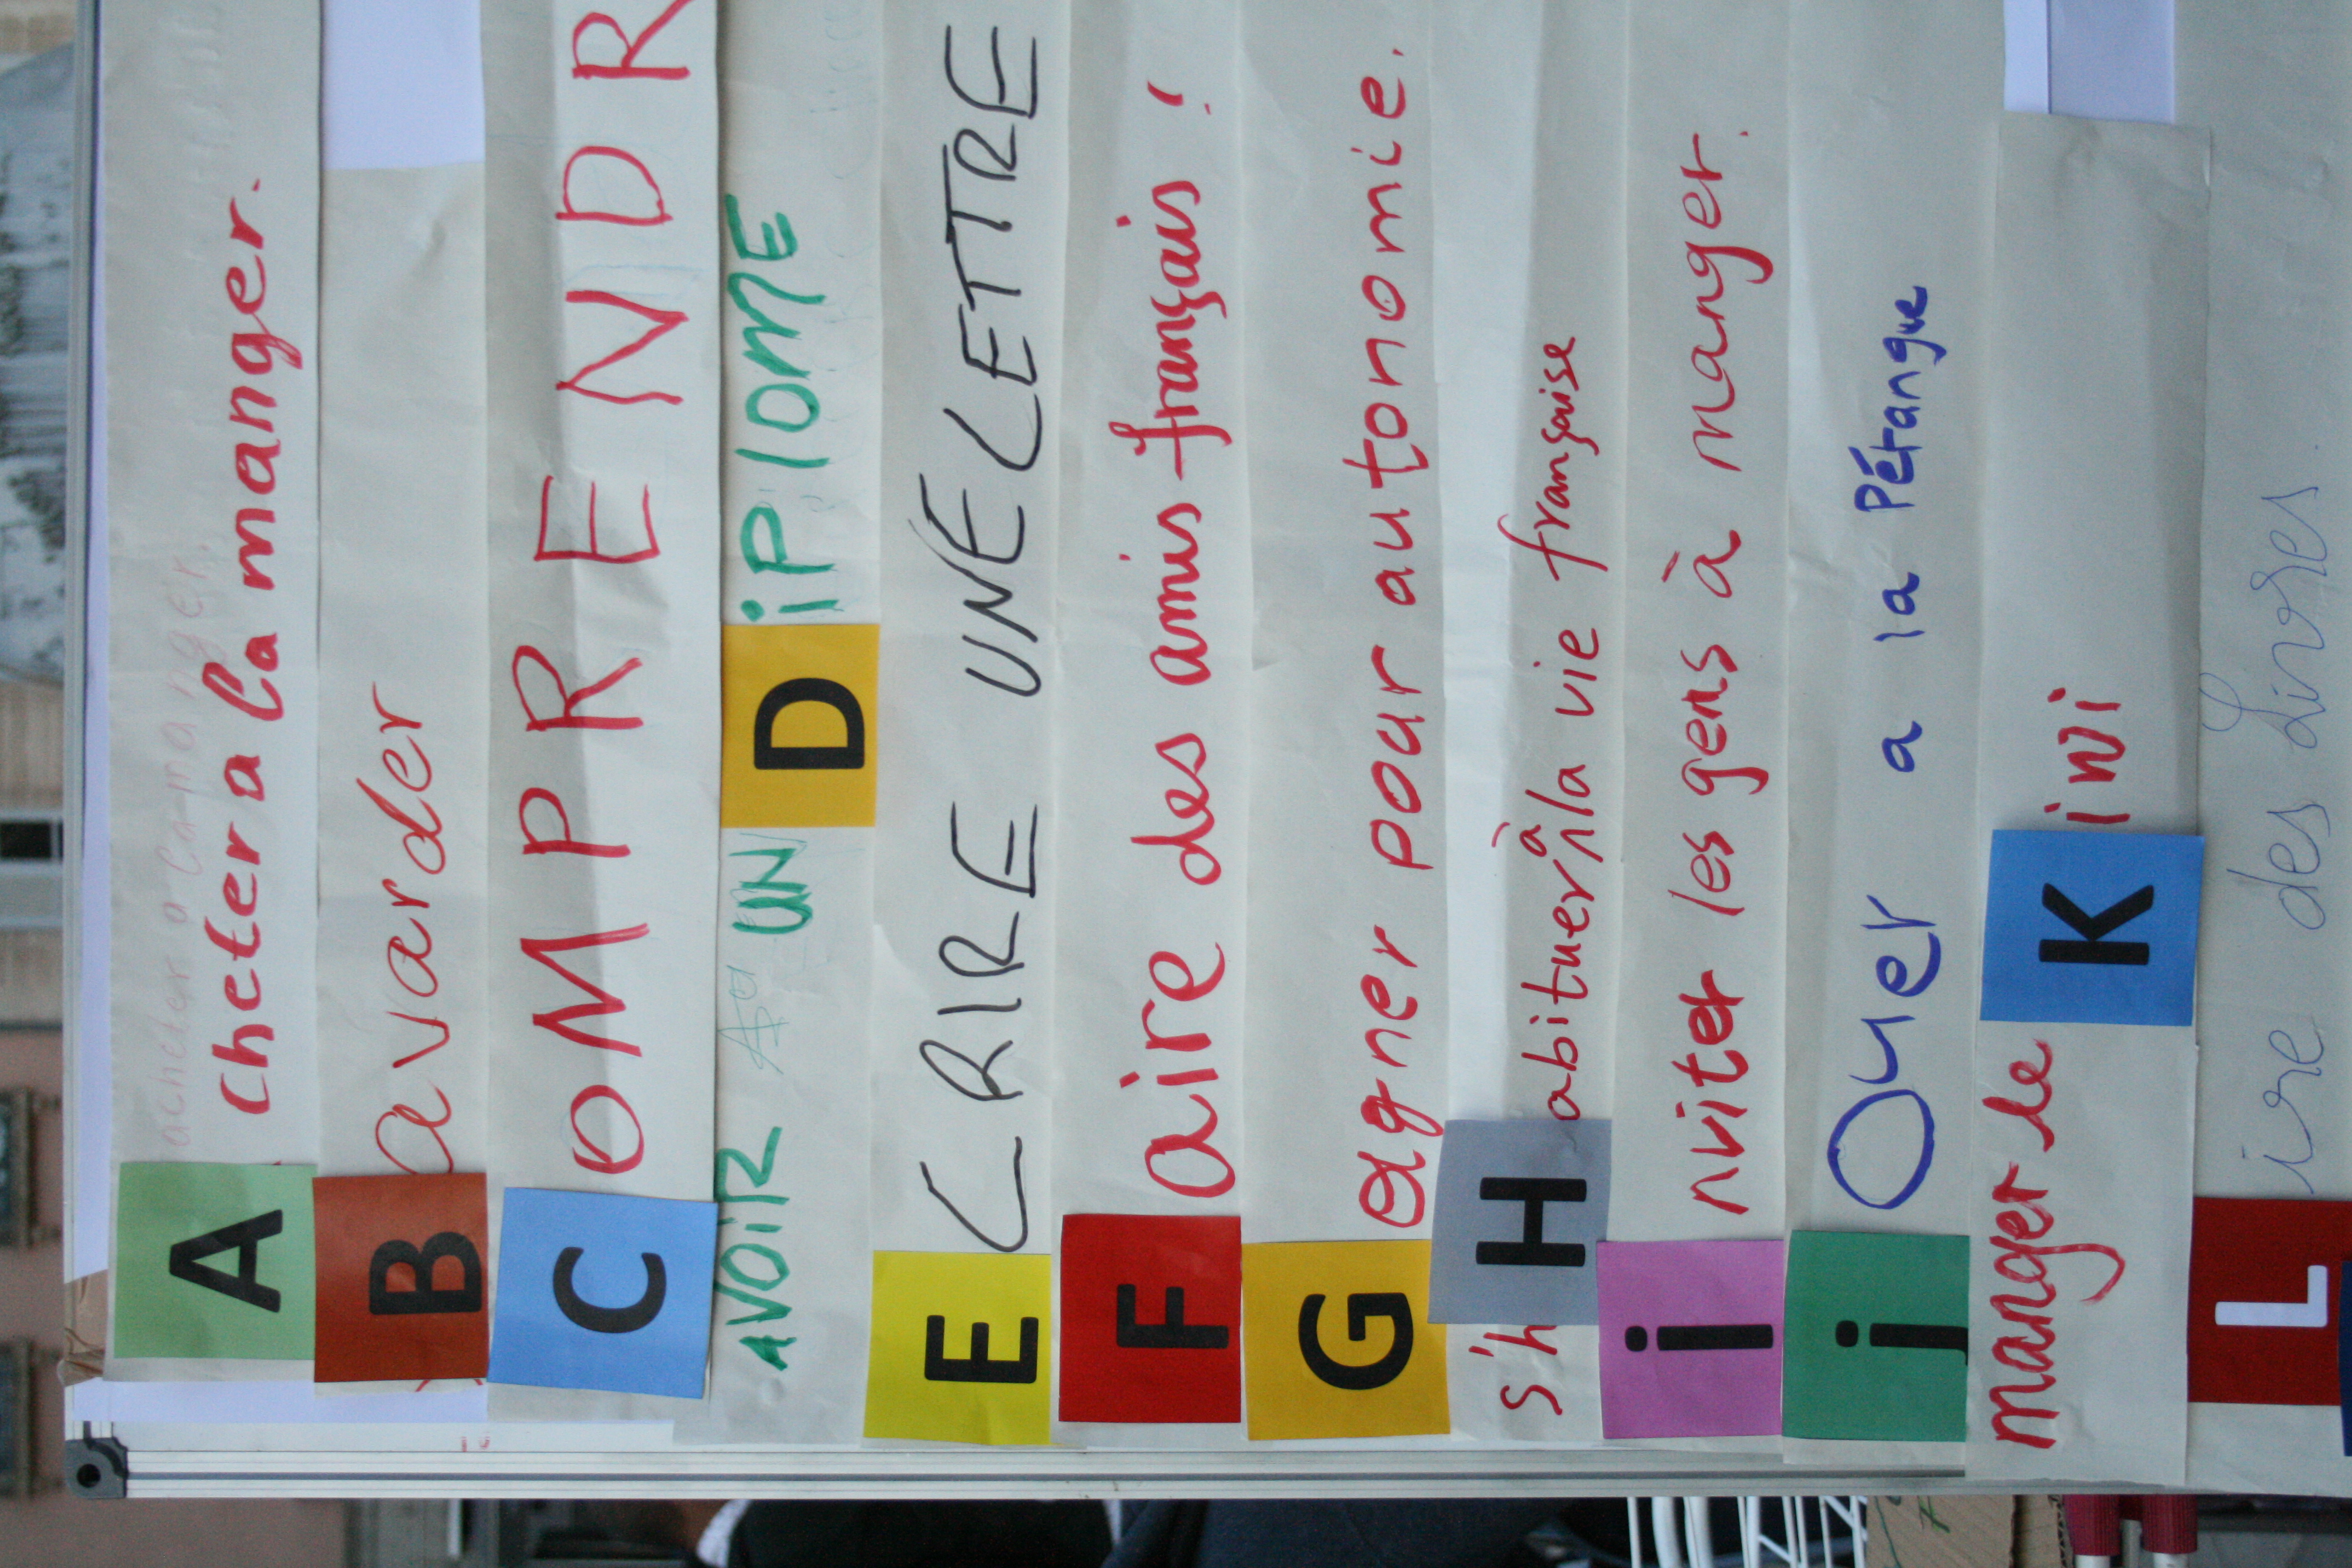 acheter a la manger.
A cheter a la manger.
B avarder
C OMPRENDR
AVOIR UN DiPlOME
E CRIRE UNE LETTRE
F aire des amis français !
G agner pour autonomie.
s'h H abituer à la vie française
i nviter les gens à manger.
j Ouer a la Pétanque
manger le K iwi
L ire des Livres.